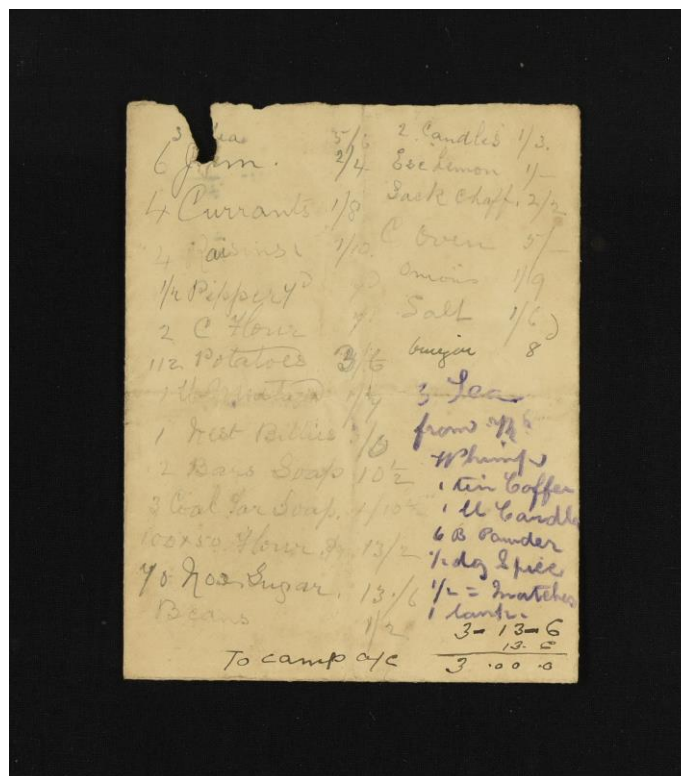 3 Tea 5/6
6 Jam. 2/4
4 Currants 1/8
4 Raisins 1/10
1/2 Pepper
2 C Flour
112 Potatoes 3/6
1
1 Nest Billies /6
2 Bars Soap 10½
3 Coal Tar Soap. 1/10½
100 x 50 Flour 13/2
70 No 2 Sugar. 13/6
Beans 1/2
To camp a/c
2 Candles 1/3.
Ess Lemon 1/-
Sack Chaff. 2/2
C Oven 5/-
Onions 1/9
Salt 1/6
8
3 Tea
from
Whimp
1 tin Coffee
1 lb Candles
6 B Powder
½ doz Spice
1/2 = Matches
1
3-13-6
3.00.0